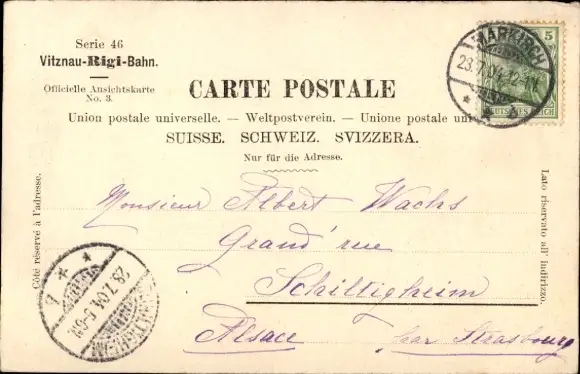 Serie 46
Vitznau-Rigi-Bahn.
Officielle Ansichtskarte
No. 3.
CARTE POSTALE
Union postale universelle. — Weltpostverein. — Unione postale uni
SUISSE. SCHWEIZ. SVIZZERA.
Nur für die Adresse.
MARKIRCH
23.7.04.
5
DEUTSCHES REICH
Côté réservé à l'adresse.
Lato riservato all' indirizzo.
Monsieur Albert Wachs
Grand' rue
Schiltigheim
Alsace par Strasbourg
23.7.04. 5-6N.